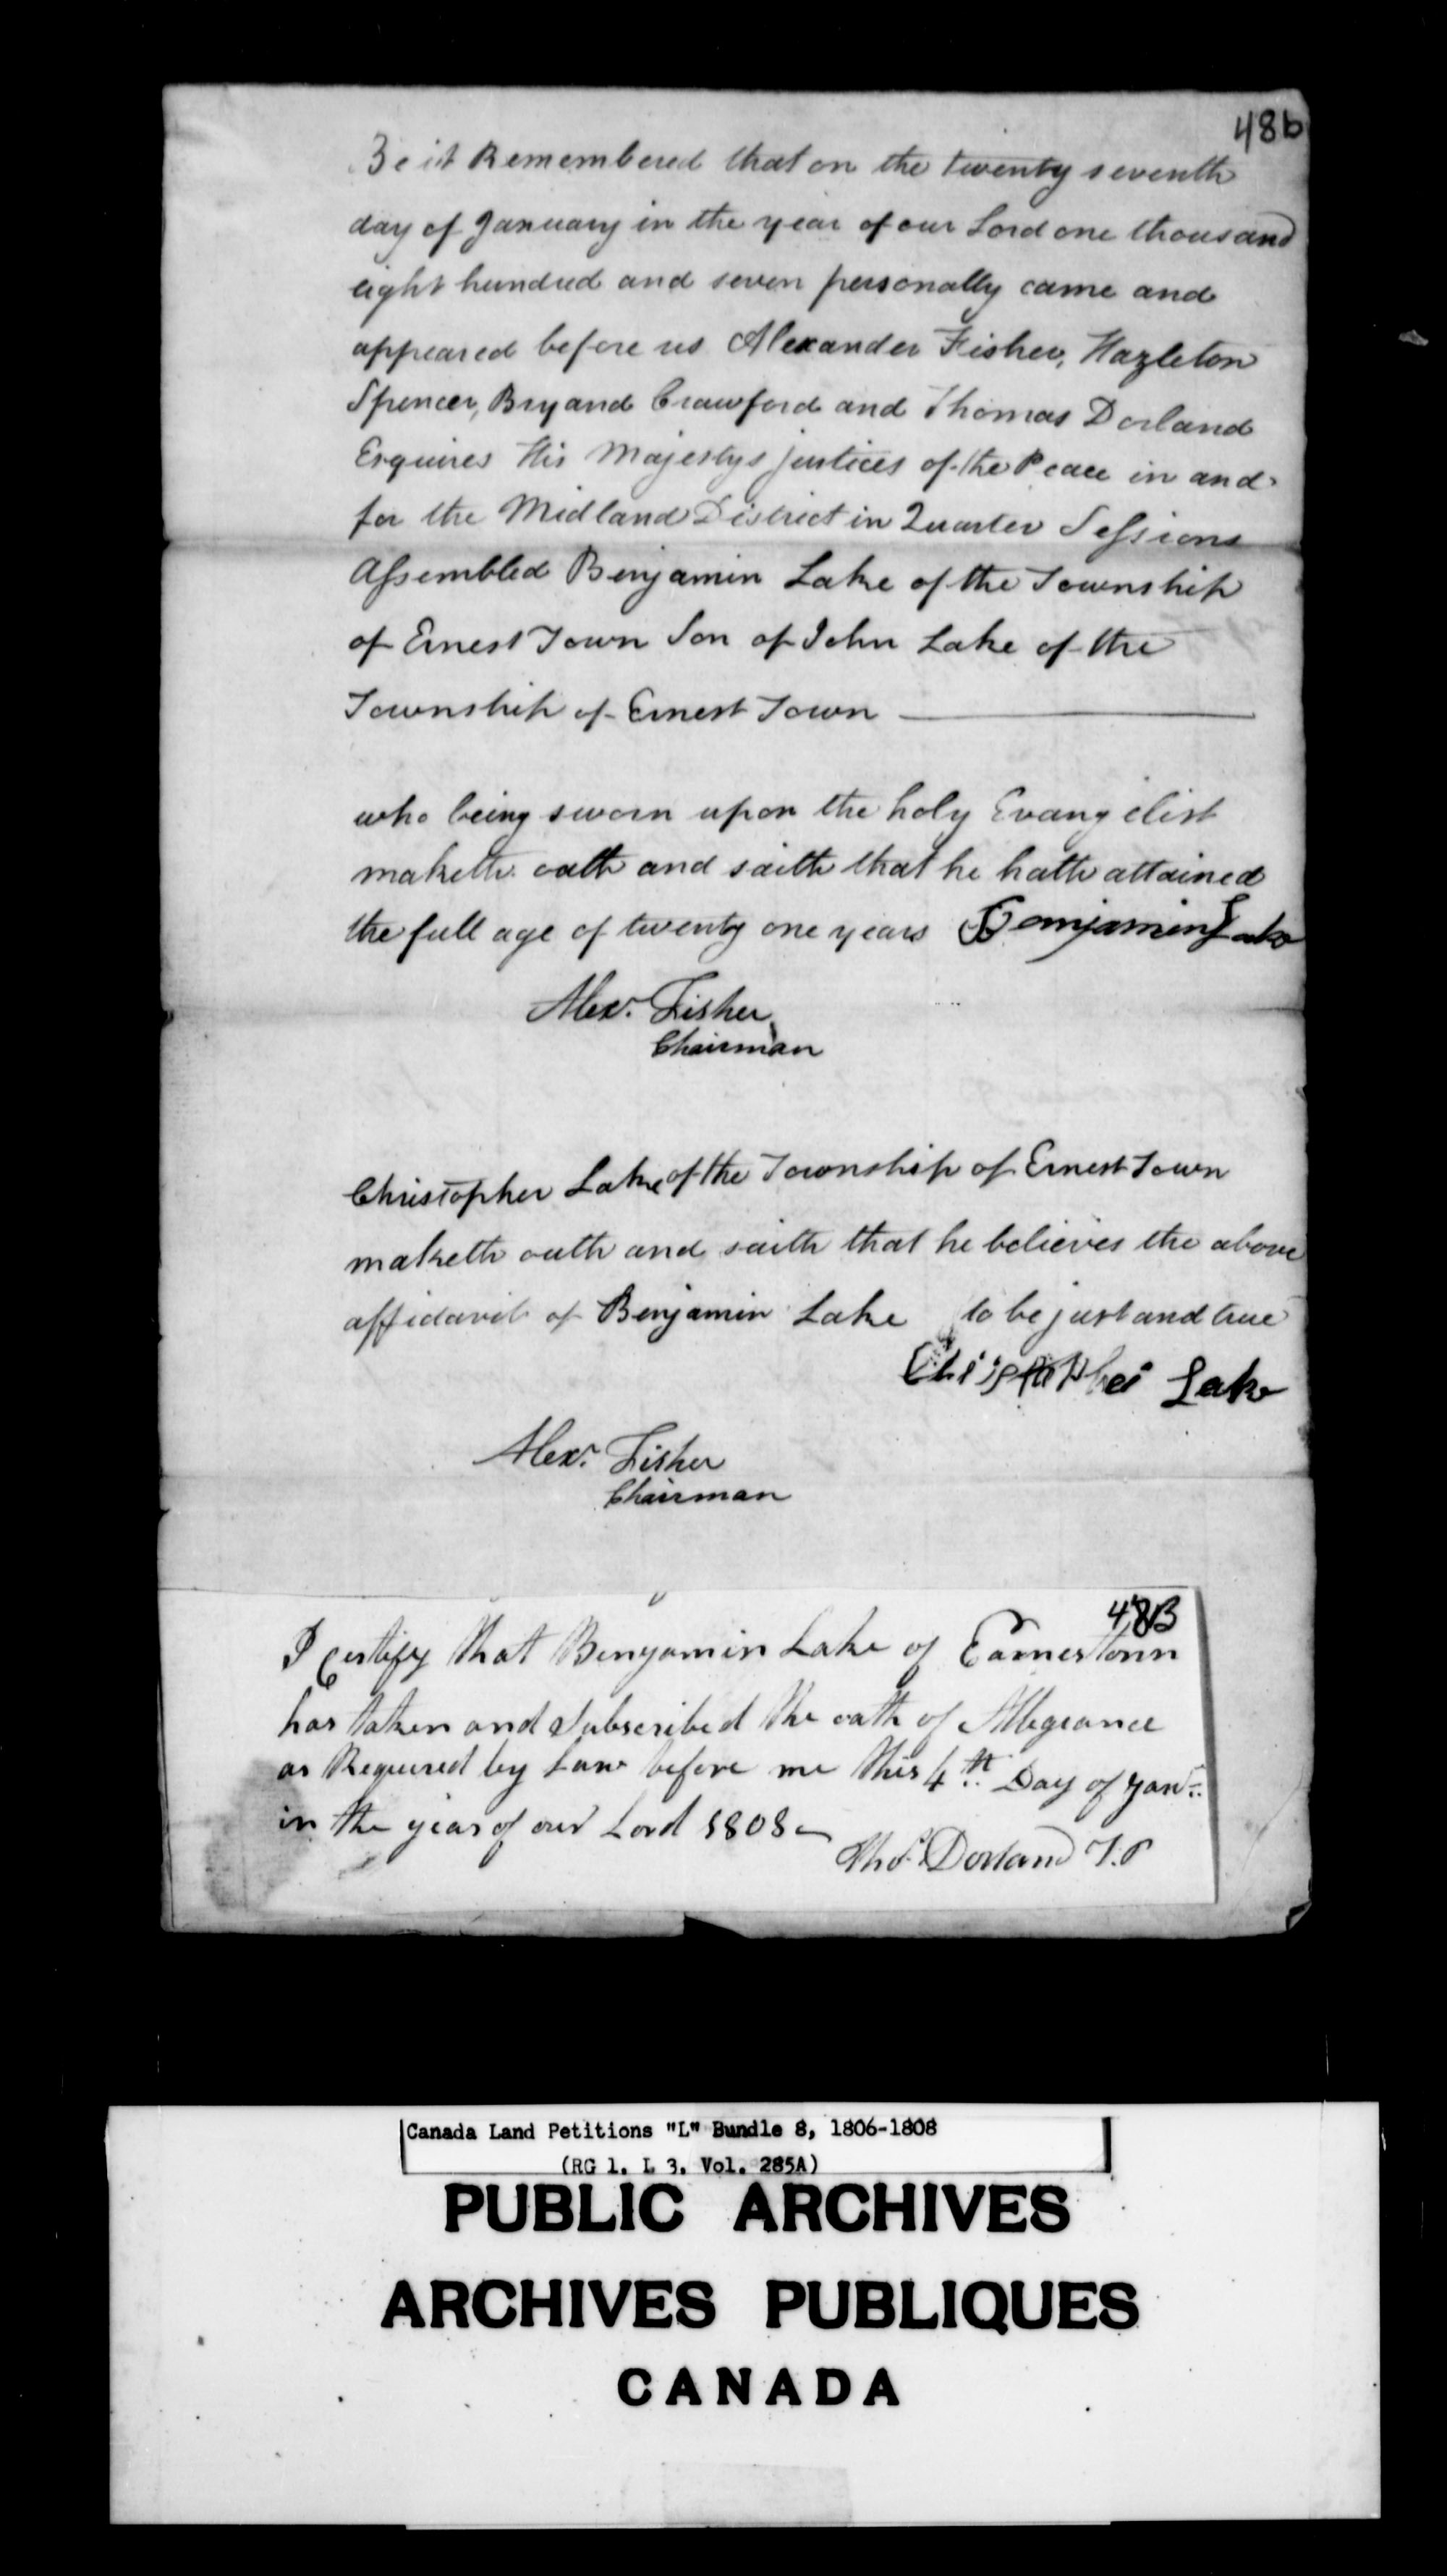 48b
Be it Remembered that on the twenty seventh
day of January in the year of our Lord one thousand
eight hundred and seven personally came and
appeared before us Alexander Fisher, Hazleton
Spencer, Bryand Crawford and Thomas Dorland
Esquires His Majestys justices of the Peace in and
for the Midland District in Quarter Sessions
Assembled Benjamin Lake of the Township
of Ernest Town Son of John Lake of the
Township of Ernest Town
who being sworn upon the holy Evangelist
maketh oath and saith that he hath attained
the full age of twenty one years Benjamin Lake
Alexr. Fisher
Chairman
Christopher Lake of the Township of Ernest Town
maketh oath and saith that he believes the above
affidavit of Benjamin Lake to be just and true
Christopher Lake
Alexr. Fisher
Chairman
48B
I Certify that Benjamin Lake of Earnestown
has taken and Subscribed the oath of Allegiance
as Required by Law before me this 4th Day of Jany.
in the year of our Lord 1808
Thos. Dorland J.P
Canada Land Petitions "L" Bundle 8, 1806-1808
(RG 1, L 3, Vol. 285A)
PUBLIC ARCHIVES
ARCHIVES PUBLIQUES
CANADA